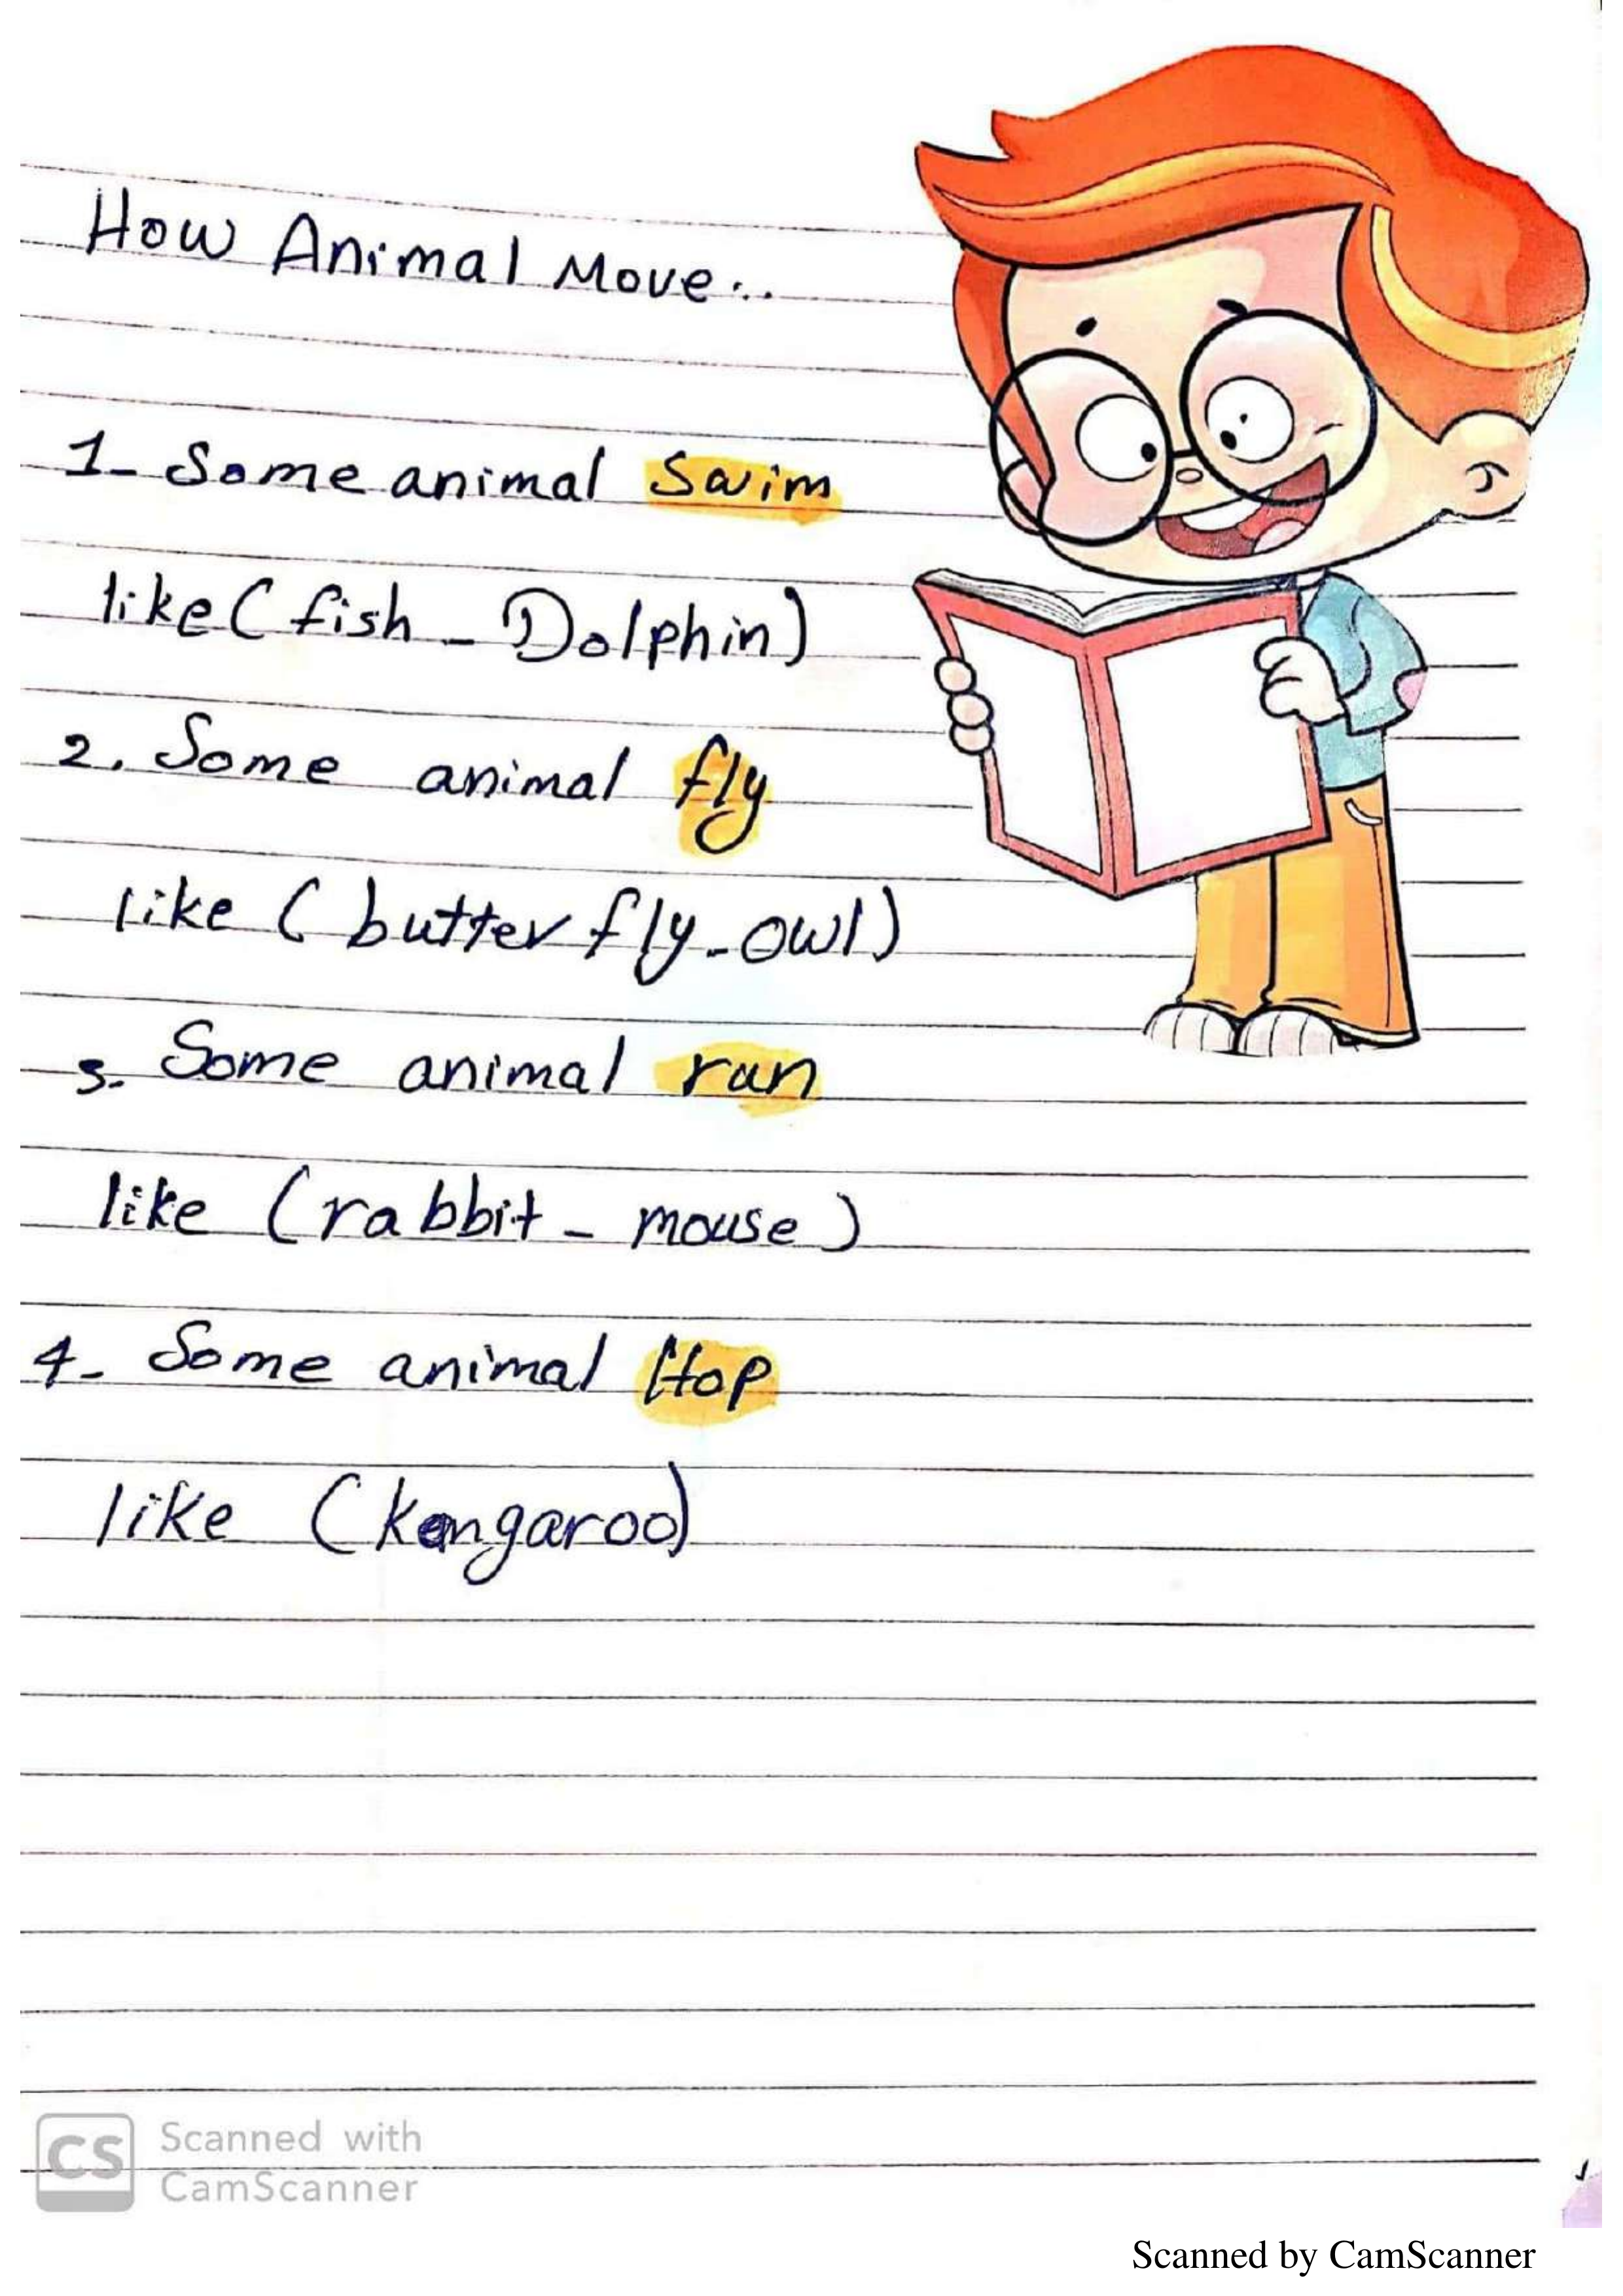 How Animal Move...
1- Some animal Swim
like ( fish - Dolphin)
2. Some animal fly
like ( butter fly - owl)
3. Some animal run
like (rabbit - mouse)
4- Some animal Hop
like (kangaroo)
CS Scanned with
CamScanner
Scanned by CamScanner